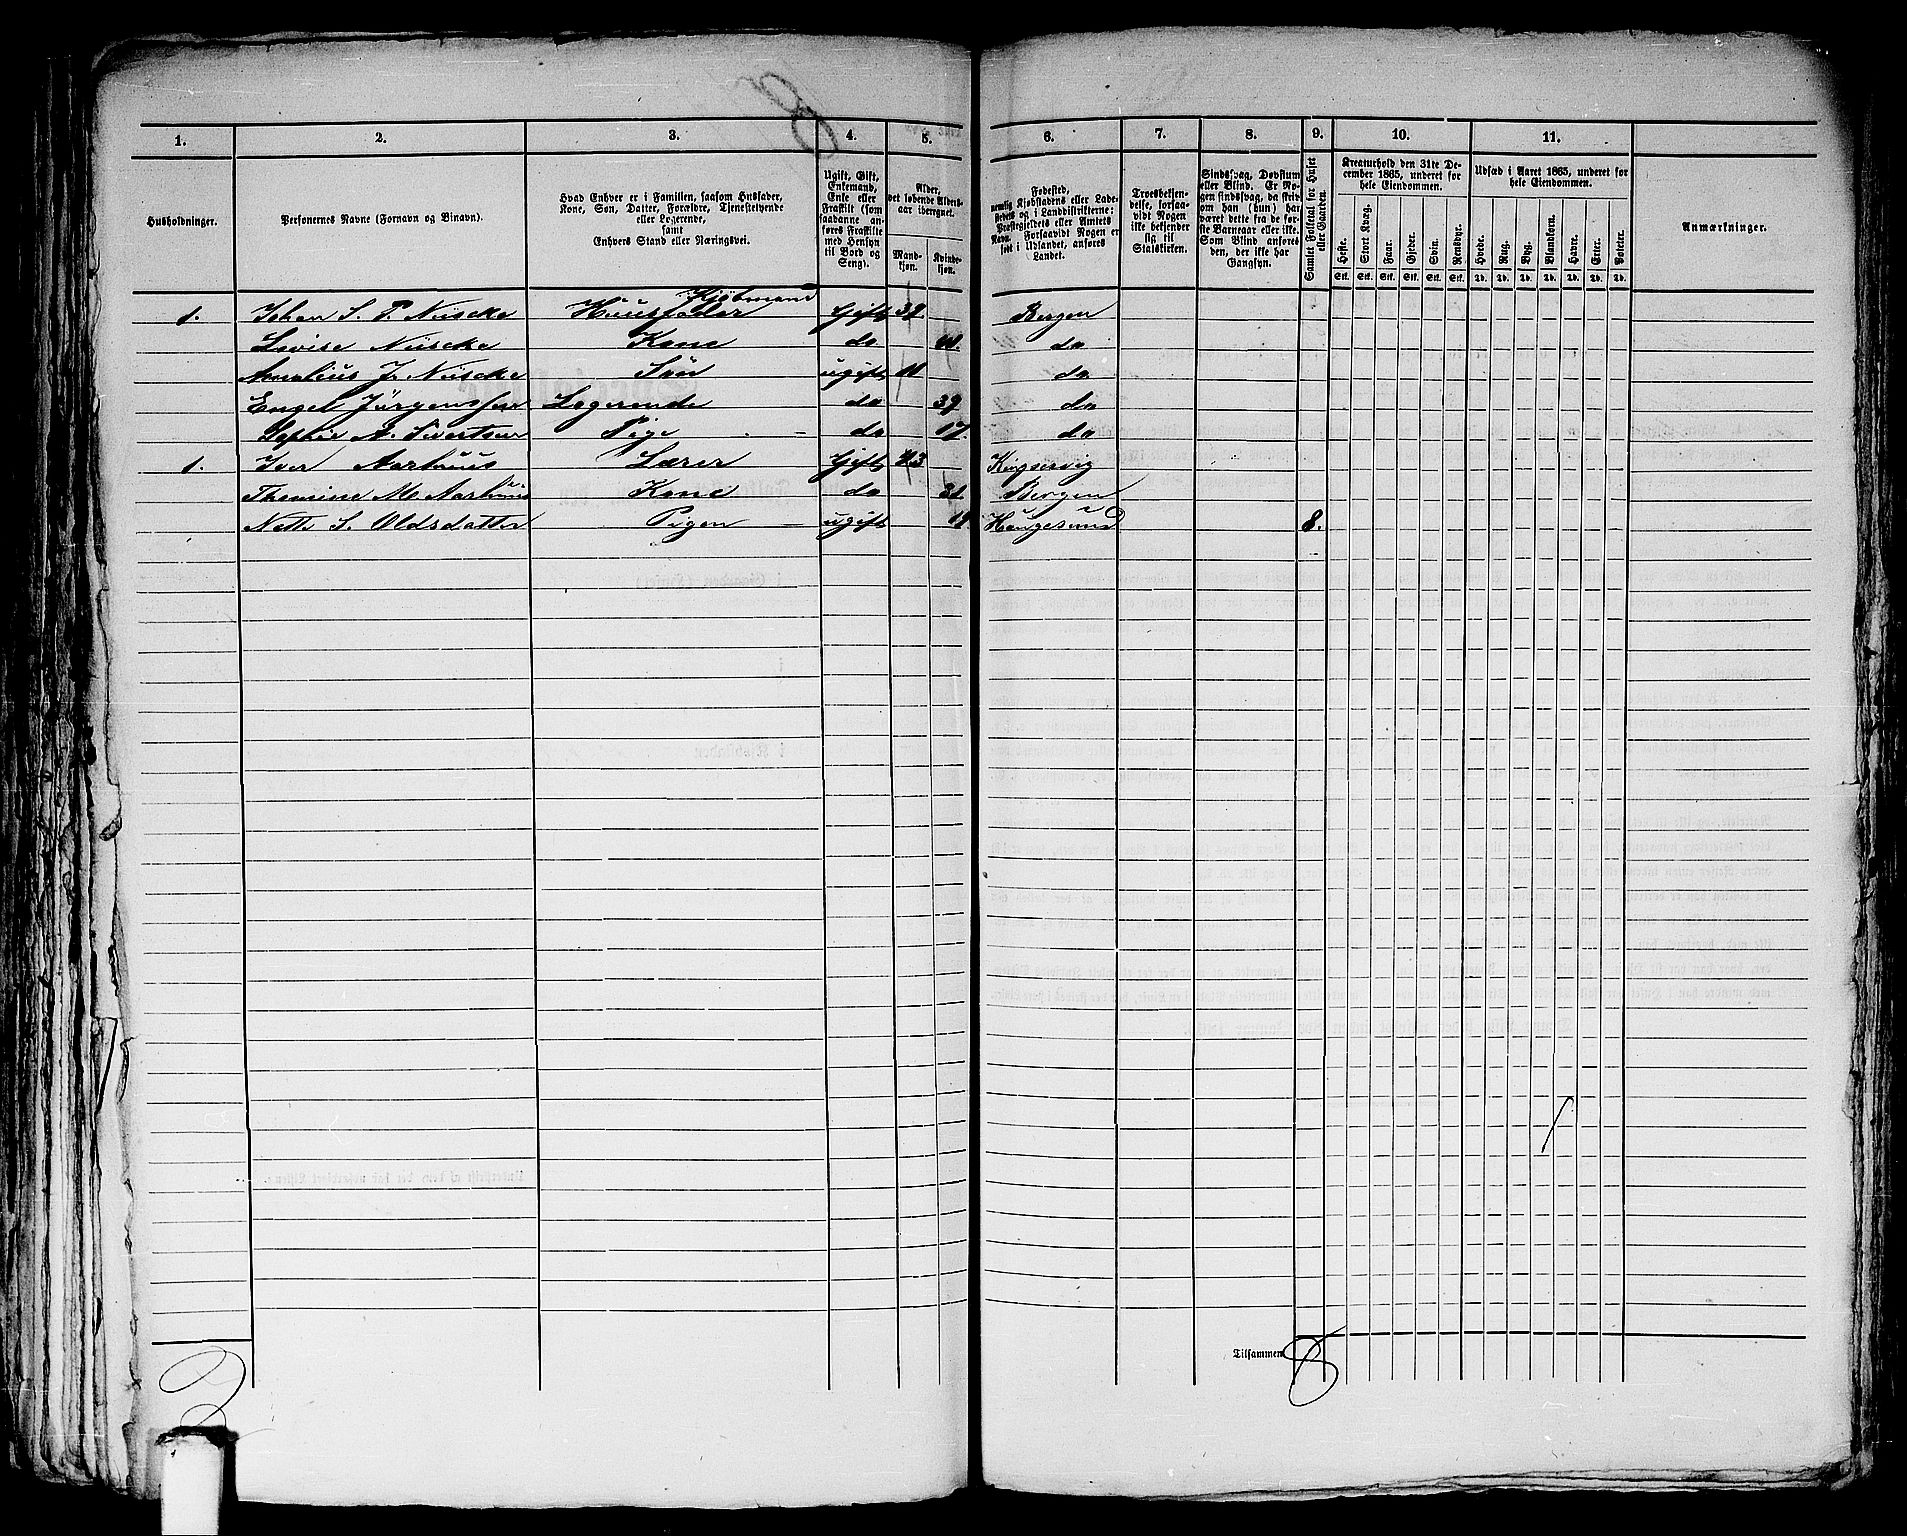 8
1. 2. 3. 4. 5. 6. 7. 8. 9. 10. 11.
Husholdninger.
Personernes Navne (Fornavn og Binavn).
Hvad Enhver er i Familien, saasom Husfader,
Kone, Søn, Datter, Forældre, Tjenestetyende
eller Logerende,
samt
Enhvers Stand eller Næringsvei.
Ugift, Gift,
Enkemand,
Enke eller
Fraskilt (som
saadanne an-
føres Fraskilte
med Hensyn
til Bord og
Seng).
Alder,
det løbende Alders-
aar iberegnet.
Mand-
kjøn.
Kvinde-
kjøn.
Fødested,
nemlig Kjøbstadens eller Lade-
stedets og i Landdistrikterne:
Præstegjeldets eller Amtets
Navn. Forsaavidt Nogen er
født i Udlandet, anføres
Landet.
Troesbekjen-
delse, forsaa-
vidt Nogen
ikke bekjender
sig til
Statskirken.
Sindssvag, Døvstum
eller Blind. Er No-
gen sindssvag, da skriv
om han (hun) har
været dette fra de før-
ste Barneaar eller ikke.
Som Blind anføres
den, der ikke har
Gangsyn.
Samlet Folketal for Huset
eller Gaarden.
Kreaturhold den 31te De-
cember 1865, underet for
hele Eiendommen.
Heste. Stort Kvæg. Faar. Gjeder. Svin. Rensdyr.
Stk. Stk. Stk. Stk. Stk. Stk.
Udsæd i Aaret 1865, underet for
hele Eiendommen.
Hvede. Rug. Byg. Blandkorn. Havre. Erter. Poteter.
Td. Td. Td. Td. Td. Td. Td.
Anmærkninger.
Kjøbmand
1. Johan S. P. Nüscke Huusfader Gift 38. Bergen
Lovise Nüscke Kone do do
J. Nüscke Søn ugift 11 do
Engel Jürgenssen Logerende do 39 do
Sophie A. Sivertsen Pige do 17. do
1. Iver Aarhuus Lærer Gift 43 Kingservig
Themine M. Aarhuus Kone do 31 Bergen
Nette S. Oldsdatter Pigen ugift 19 Haugesund 8.
Tilsammen 8
2